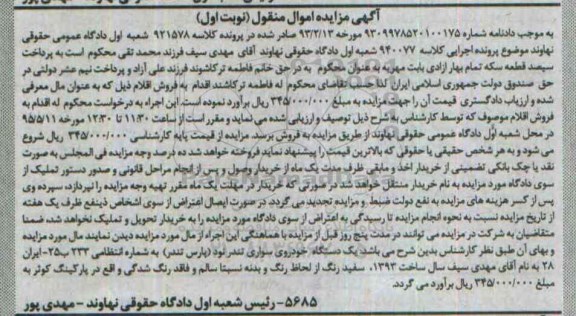 آگهی مزایده اموال منقول (نوبت اول)
به موجب دادنامه شماره ۹۳۰۹۹۷۸۵۲۰۱۰۰۱۷۵ مورخه ۹۳/۲/۱۳ صادر شده در پرونده کلاسه ۹۲۱۵۷۸ شعبه اول دادگاه عمومی حقوقی
نهاوند موضوع پرونده اجرایی کلاسه ۹۴۰۰۷۷ شعبه اول دادگاه حقوقی نهاوند آقای مهدی سیف فرزند محمد تقی محکوم است به پرداخت
سیصد قطعه سکه تمام بهار ازادی بابت مهریه به عنوان محکوم به در حق خانم فاطمه ترکاشوند فرزند علی آزاد و پرداخت نیم عشر دولتی در
حق صندوق دولت جمهوری اسلامی ایران لذا حسب تقاضای محکوم له فاطمه ترکاشند اقدام به فروش اقلام ذیل که به عنوان مال معرفی
شده و ارزیاب دادگستری قیمت آن را جهت مزایده به مبلغ ۳۴۵/۰۰۰/۰۰۰ ریال برآورد نموده است. این اجراء به درخواست محکوم له اقدام به
فروش اقلام موصوف که توسط کارشناس به شرح ذیل توصیف و ارزیابی شده می نماید و مقرر است از ساعت ۱۱/۳۰ تا ۱۲/۳۰ مورخه ۹۵/۵/۱۱
در محل شعبه اول دادگاه عمومی حقوقی نهاوند از طریق مزایده به فروش برسد. مزایده از قیمت پایه کارشناسی ۳۴۵/۰۰۰/۰۰۰ ریال شروع
می شود و به هر شخص حقیقی یا حقوقی که بالاترین قیمت را پیشنهاد نماید فروخته خواهد شد ده درصد وجه مزایده فی المجلس به صورت
نقد یا چک بانکی تضمینی از خریدار اخذ و مابقی ظرف مدت یک ماه از خریدار وصول و پس از انجام مراحل قانونی و صدور دستور تملیک از
سوی دادگاه مورد مزایده به نام خریدار منتقل خواهد شد در صورتی که خریدار در مهلت یک ماه مقرر تهیه وجه مزایده را نپردازد، سپرده وی
پس از کسر هزینه های مزایده به نفع دولت ضبط و مزایده تجدید می گردد. در صورت ایصال اعتراض از سوی اشخاص ذینفع ظرف یک هفته
از تاریخ مزایده نسبت به نحوه انجام مزایده تا رسیدگی به اعتراض از سوی دادگاه مورد مزایده را به خریدار تحویل و تملیک نخواهد شد، ضمنا
متقاضیان به شرکت در مزایده می توانند در مدت پنج روز قبل از مزایده با هماهنگی این اجراء از مال مورد مزایده دیدن نمایند مال مورد مزایده
و بهای آن طبق نظر کارشناس بدین شرح می باشد: یک دستگاه خودروی سواری تندر لنود (پارس تندر) به شماره انتظامی ۲۳۳ ب۲۵- ایران
۲۸ به نام آقای مهدی سیف سال ساخت ۱۳۹۳، سفید رنگ از لحاظ رنگ و بدنه نسبتا سالم و فاقد رنگ شدگی و اقع در پارکینگ کوثر به
مبلغ ۳۴۵/۰۰۰/۰۰۰ ریال برآورد می گردد.
۵۶۸۵- رئیس شعبه اول دادگاه حقوقی نهاوند - مهدی پور